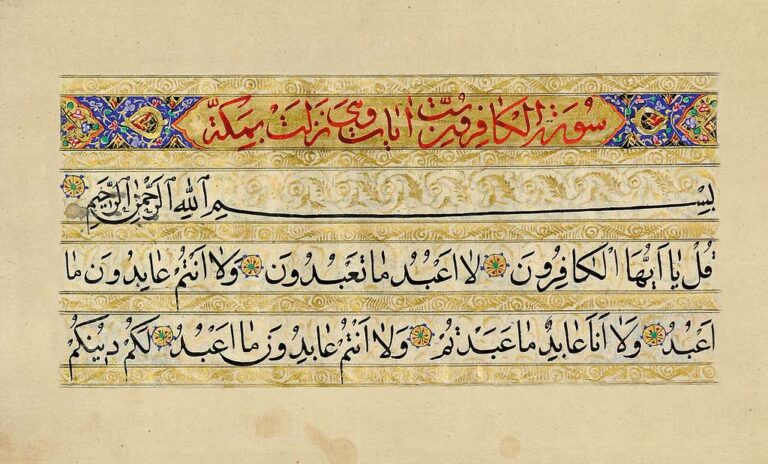 سُورَةُ الْكَافِرُونَ سِتُّ اٰيَاتٍ وَهِيَ نَزَلَتْ بِمَكَّةَ
بِسْمِ اللهِ الرَّحْمٰنِ الرَّحِيمِ
قُلْ يَا اَيُّهَا الْكَافِرُونَ لَا اَعْبُدُ مَا تَعْبُدُونَ وَلَا اَنْتُمْ عَابِدُونَ مَا
اَعْبُدُ وَلَا اَنَا عَابِدٌ مَا عَبَدْتُمْ وَلَا اَنْتُمْ عَابِدُونَ مَا اَعْبُدُ لَكُمْ دِينُكُمْ